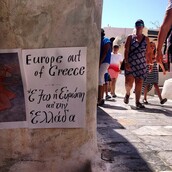 Europe out
of Greece
Έξω η Ευρώπη
από την
Ελλάδα